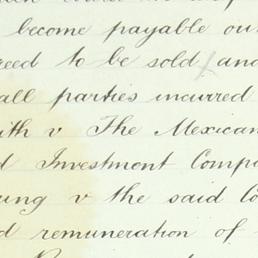 become payable out
reed to be sold and
all parties incurred
ith v The Mexican
d Investment Compa
ung v the said Co
d remuneration of